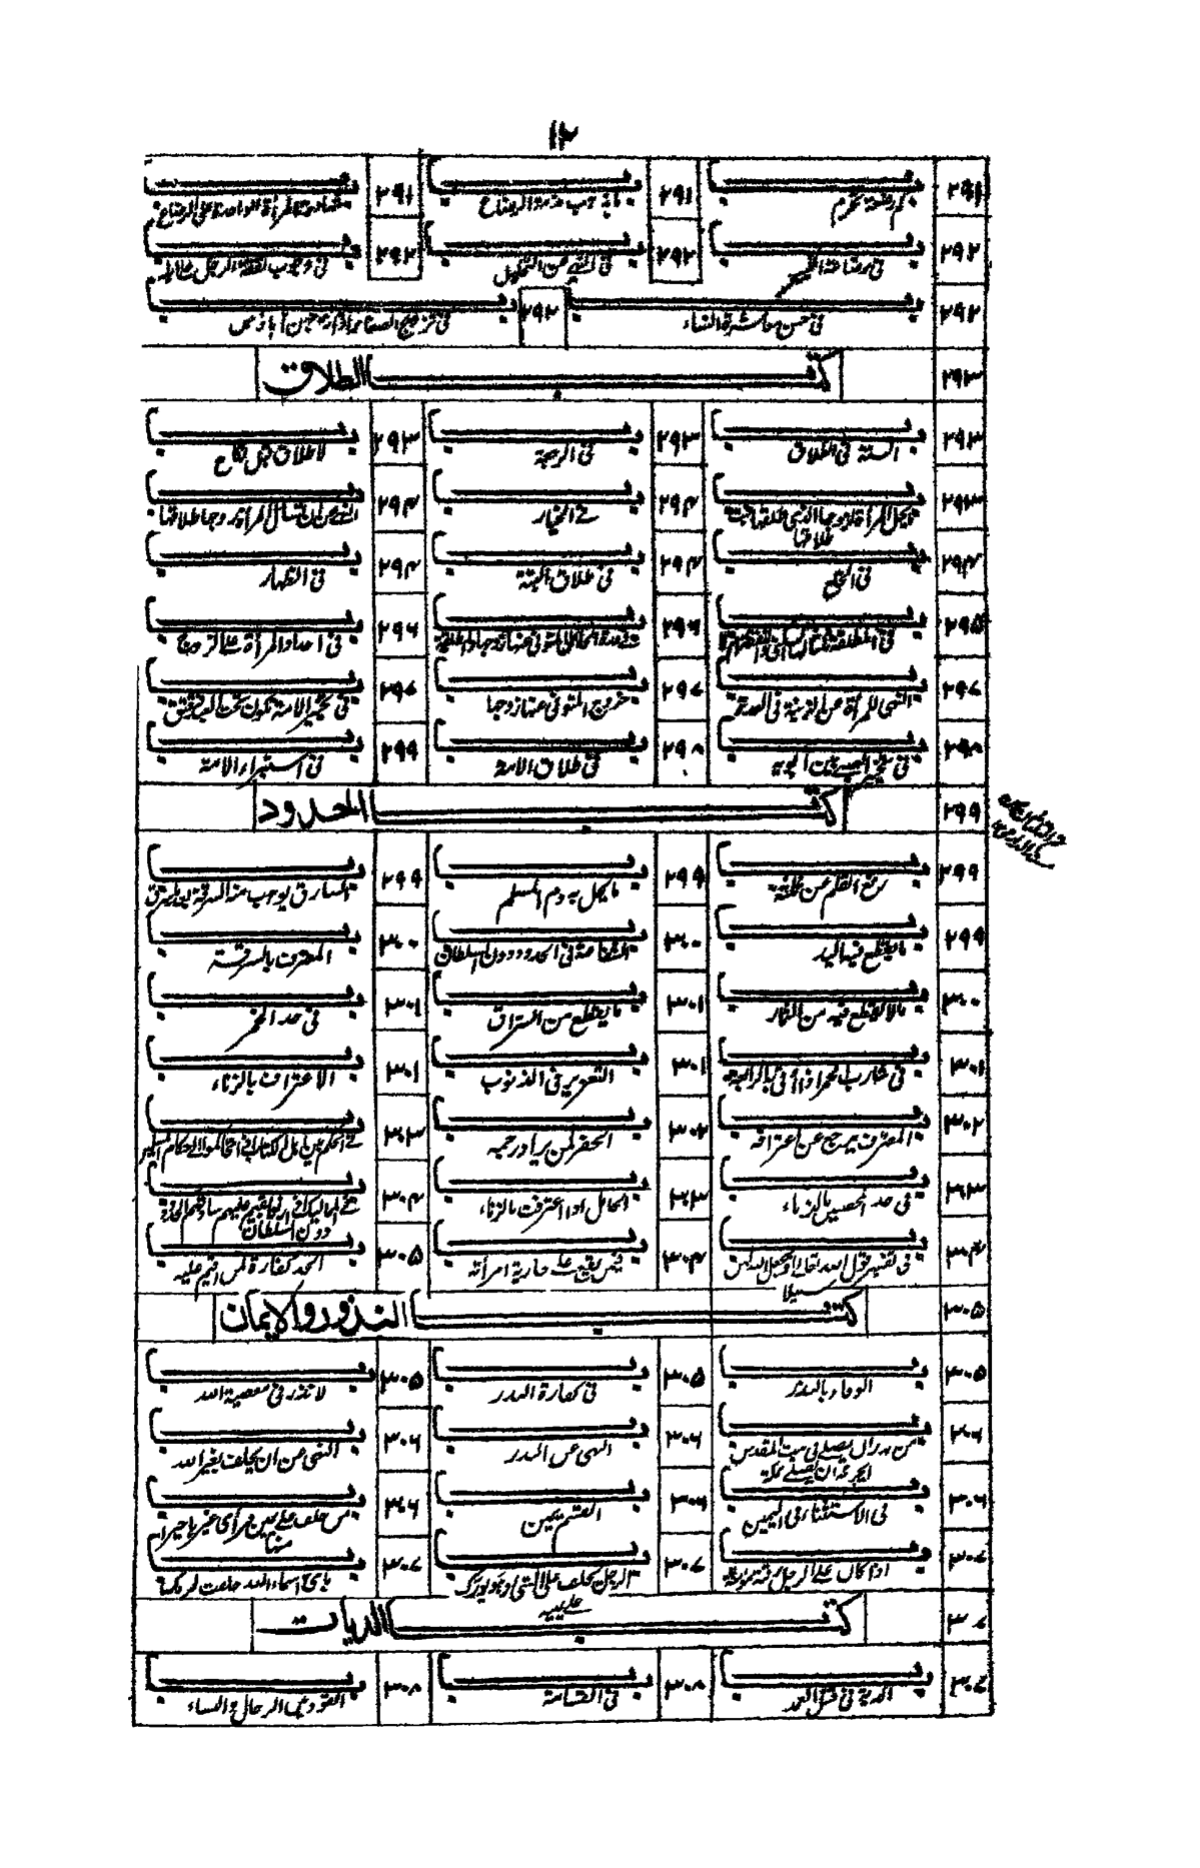 ١٢
٢٩١ باب كم رضعة تحرم ٢٩١ باب ما يذهب مذمة الرضاع ٢٩١ باب شهادة المرأة الواحدة على الرضاع
٢٩٢ باب في رضاعة الكبير ٢٩٢ باب في النهي عن التبتل ٢٩٢ باب في وجوب نفقة الرجل على
٢٩٢ باب في حسن معاشرة النساء ٢٩٢ باب في تزويج الصغار اذا زوجهن آباؤهن
٢٩٣ كتاب الطلاق
٢٩٣ باب السنة في الطلاق ٢٩٣ باب في الرجعة ٢٩٣ باب لا طلاق قبل نكاح
٢٩٣ باب ما يحل المرأة لزوجها الذي طلقها فبت طلاقها ٢٩٤ باب في الخيار ٢٩٤ باب النهي عن ان تسأل المرأة زوجها طلاقها
٢٩٤ باب في الخلع ٢٩٤ باب في طلاق البتة ٢٩٤ باب في الظهار
٢٩٥ باب في المطلقة ثلاثا السكنى والنفقة ٢٩٦ باب في عدة الحامل المتوفى عنها زوجها والمطلقة ٢٩٦ باب في احداد المرأة على الزوج
٢٩٧ باب النهي للمرأة عن الزينة في العدة ٢٩٧ باب خروج المتوفى عنها زوجها ٢٩٧ باب في تخيير الامة تكون تحت العبد فتعتق
٢٩٨ باب في تخيير الصبي بين ابويه ٢٩٨ باب في طلاق الامة ٢٩٩ باب في استبراء الامة
٢٩٩ كتاب الحدود
٢٩٩ باب رفع القلم عن ثلثة ٢٩٩ باب ما يحل به دم المسلم ٢٩٩ باب السارق يوهب منه السرقة بعد ما سرق
٢٩٩ باب ما يقطع فيه اليد ٣٠٠ باب الشفاعة في الحدود دون السلطان ٣٠٠ باب المعترف بالسرقة
٣٠٠ باب ما لا يقطع فيه من الثمار ٣٠١ باب ما يقطع من السراق ٣٠١ باب في حد الخمر
٣٠١ باب في شارب الخمر اذا اتي به الرابعة ٣٠١ باب التعزير في الذنوب ٣٠١ باب الاعتراف بالزناء
٣٠٢ باب المعترف يرجع عن اعترافه ٣٠٢ باب الحفر لمن يراد رجمه ٣٠٣ باب في الحكم بين اهل الكتاب اذا تحاكموا الى حكام المسلمين
٣٠٣ باب في حد المحصنين بالزناء ٣٠٣ باب الحامل اذا اعترفت بالزناء ٣٠٤ باب في المماليك اذا زنوا يقيم عليهم ساداتهم الحد دون السلطان
٣٠٤ باب في تفسير قول الله تعالى او يجعل الله لهن سبيلا ٣٠٤ باب فيمن يقع على جارية امرأته ٣٠٥ باب الحد كفارة لمن اقيم عليه
٣٠٥ كتاب النذور والايمان
٣٠٥ باب الوفاء بالنذر ٣٠٥ باب في كفارة النذر ٣٠٥ باب لا نذر في معصية الله
٣٠٦ باب من نذر ان يصلي في بيت المقدس ايجزئه ان يصلي بمكة ٣٠٦ باب النهي عن النذر ٣٠٦ باب النهي عن ان يحلف بغير الله
٣٠٦ باب في الاستثناء في اليمين ٣٠٦ باب القسم يمين ٣٠٦ باب من حلف على يمين فرأى غيرها خيرا منها
٣٠٧ باب اذا كان على الرجل رقبة مؤمنة ٣٠٧ باب الرجل يحلف على الشيء وهو يورك على يمينه ٣٠٧ باب باي اسماء الله حلفت لزمك
٣٠٧ كتاب الديات
٣٠٧ باب الدية في قتل العمد ٣٠٨ باب في القسامة ٣٠٨ باب القود بين الرجال والنساء